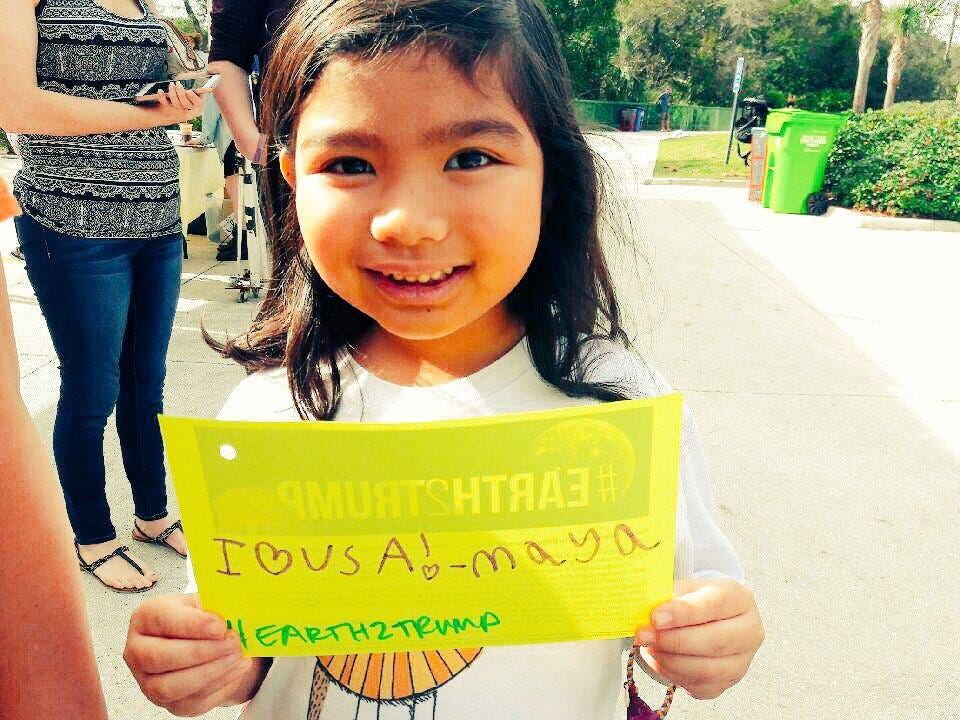 #EARTH2TRUMP
I ♡ USA! -maya
#EARTH2TRUMP